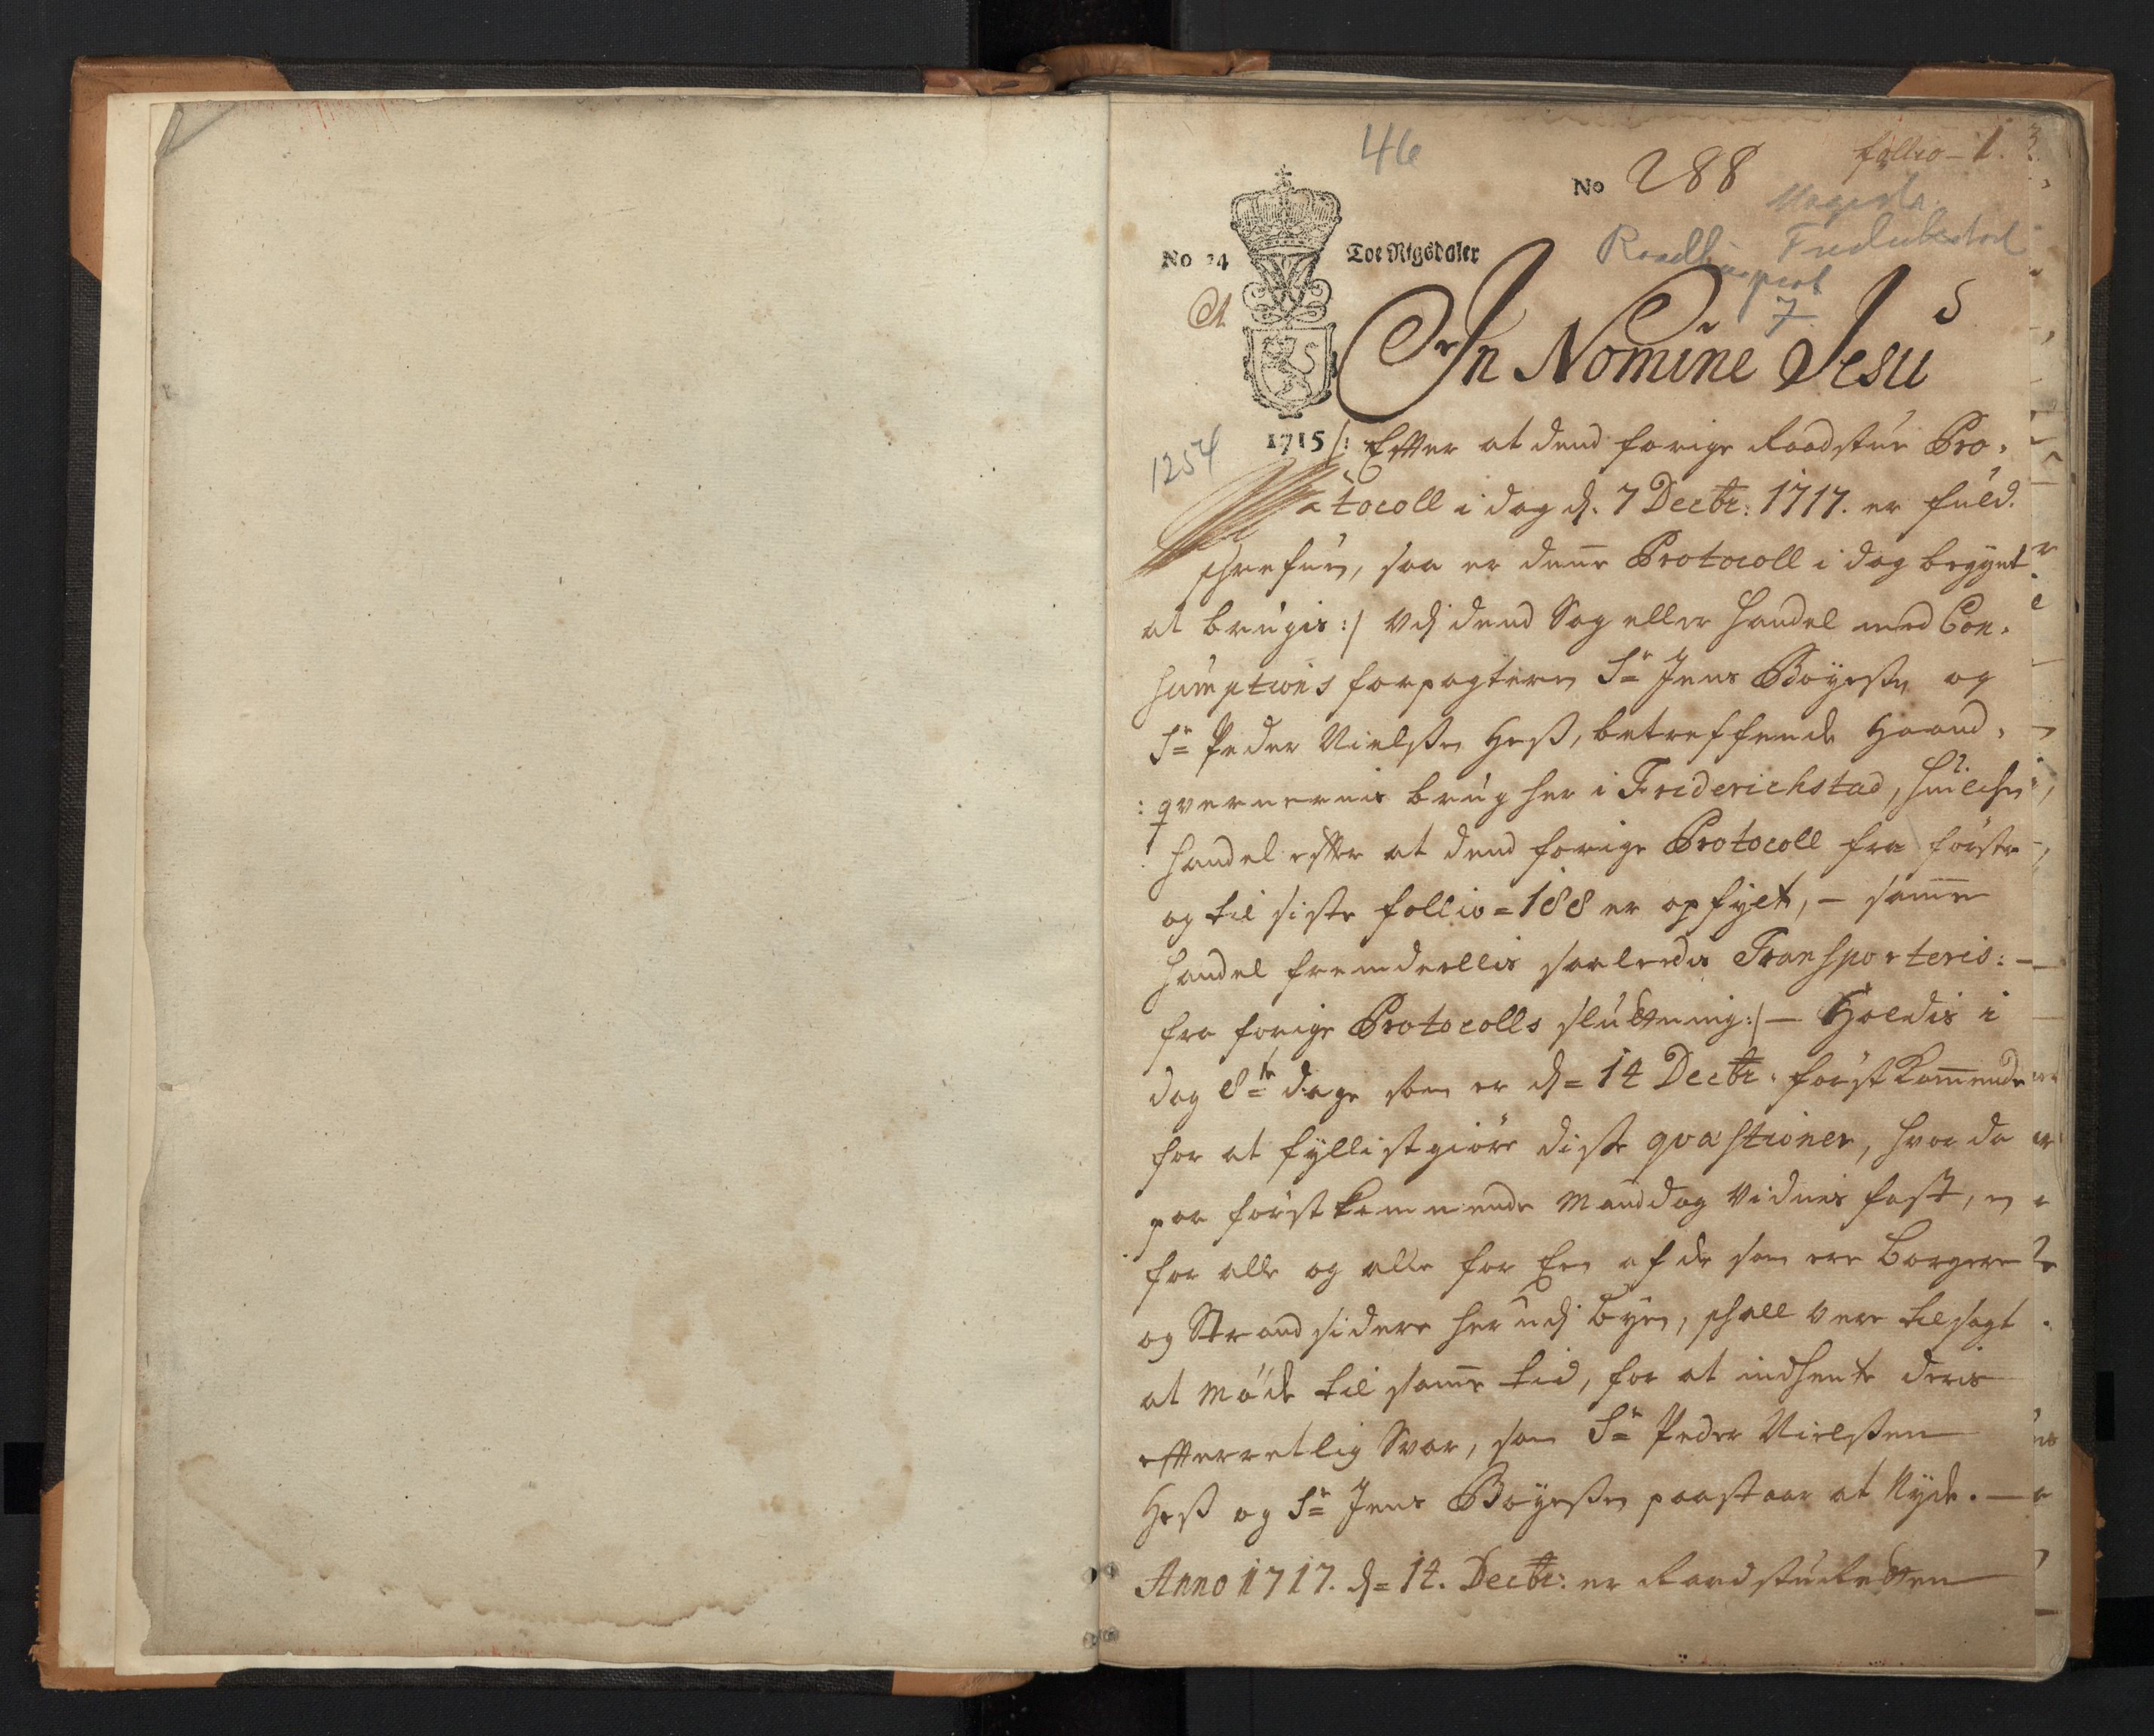 46
No 288
follio - 1.
Magistr.
Fredrikstad
Raadhusprot
7
No 24
Toe Rigsdaler
In Nomine Jesu
1715
1254
/: Efter at dend forige Raadstue Pro-
tocoll i dag d. 7 Decbr: 1717. er fuld.
schrefuen, saa er denne Protocoll i dag begynt
at brugis :/ Udj dend Sag eller handel med Con-
sumptions forpagteren Sr Jens Boyesen og
Sr Peder Nielsen Hess, betreffende Haand,
: qvernernis brug her i Friderichstad, huilchen
handel efter at dend forige Protocoll fra förste
og til siste follio = 188 er opfylt, - samme
handel fremdeellis saaledis Transporteris: -
fra forige Protocolls sluttning :/ - Holdis i
dag 8te dage som er d = 14 Decbr: först kommende
for at fyllistgiöre disse qvæstioner, hvor da
paa först kommende Manddag Vidnis fast, en
for alle og alle for Een af de som ere borgere
og Strandsidere her udj byen, schall vere tilsagt
at Möde til samme tid, for at indhente deris
efterretlig Svar, som Sr Peder Nielssen
Hess og Sr Jens Boyesen paastaar at Nyde. -
Anno 1717. d = 14. Decbr: er Raadstueretten